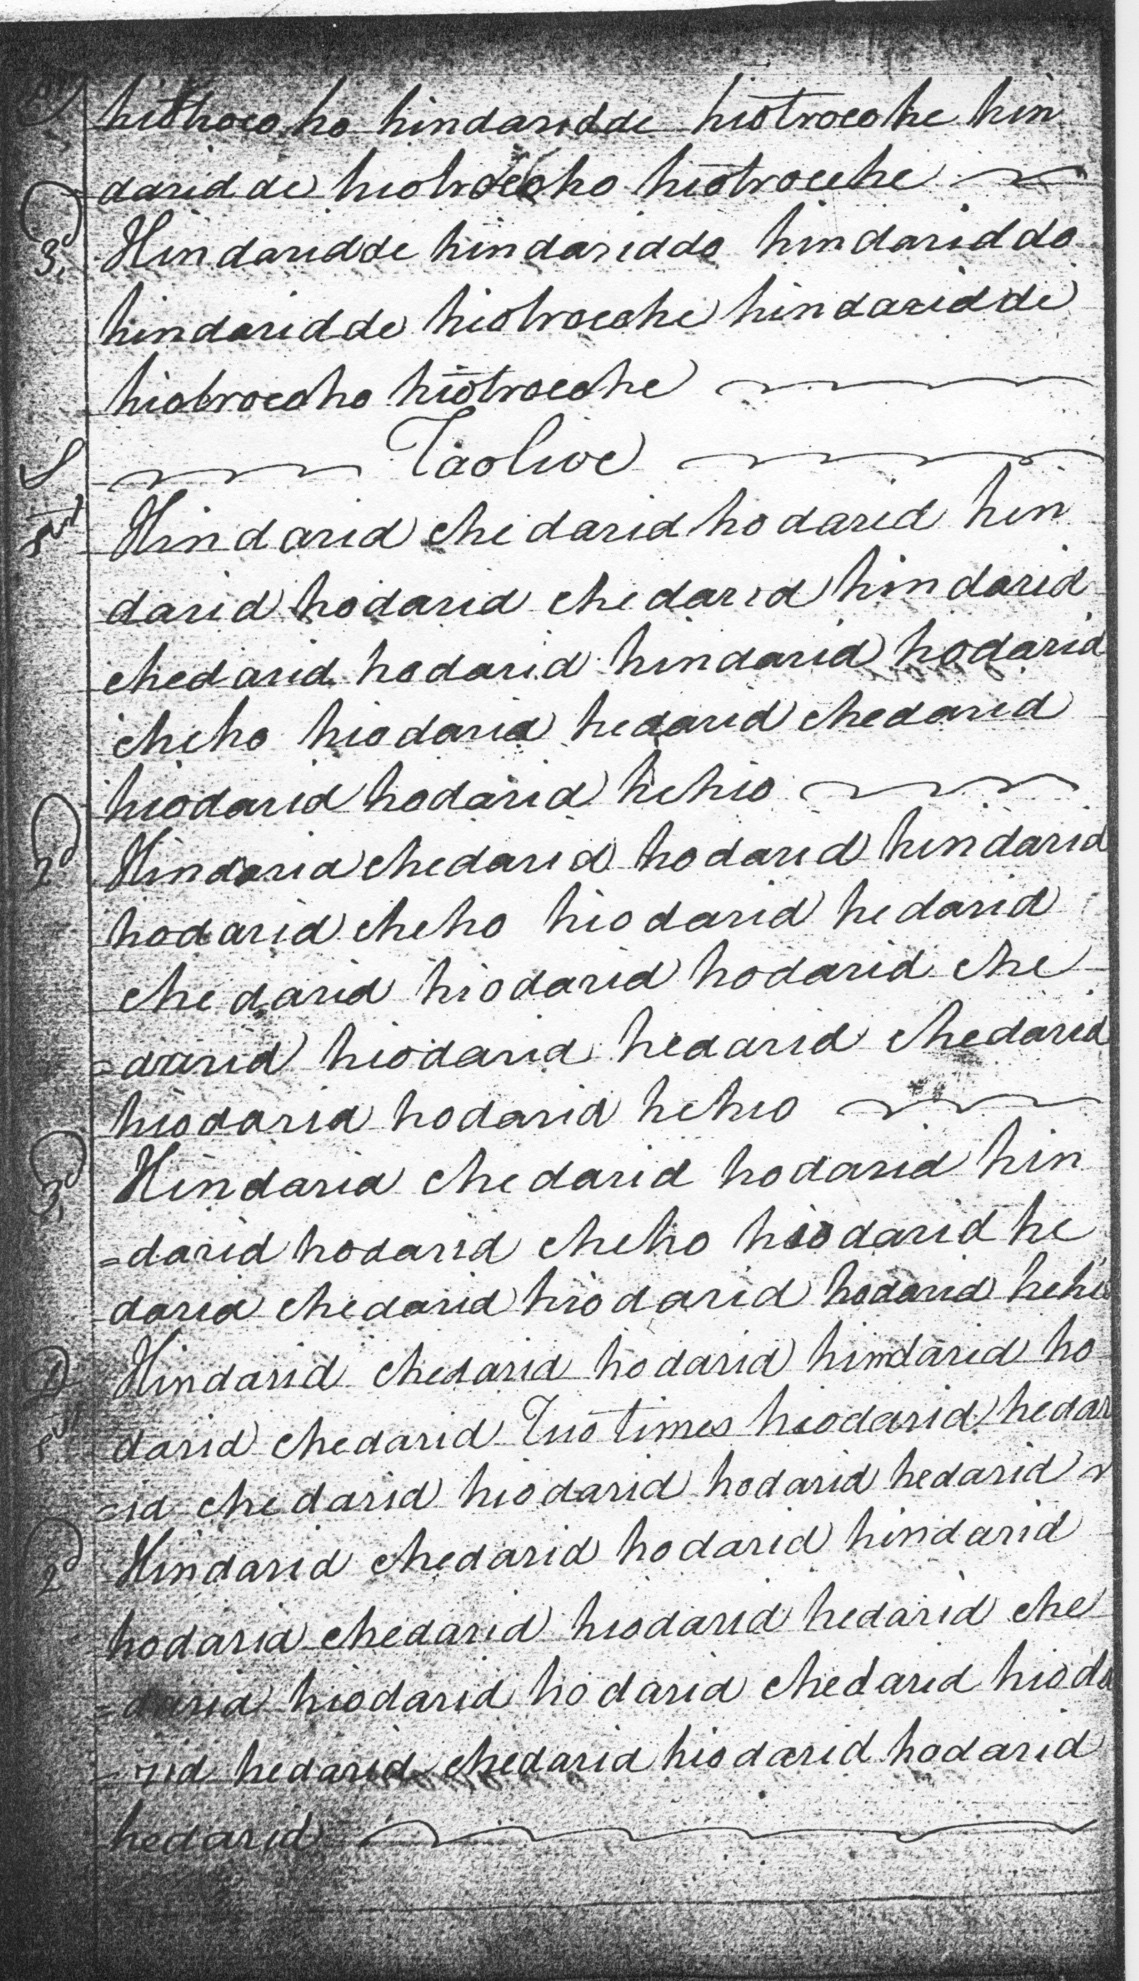 hiotrocoho hindaridde hiotroeohe hin
daridde hiotroeoho hiotroeehe
3d Hindaridde hindariddo hindariddo
hindaridde hiotroeohe hindaridde
hiotroeoho hiotroeohe
S Taolive
1st Hindarid chedarid hodarid hin
darid hodarid chedarid hindarid
chedarid hodarid hindarid hodarid
cheho hiodarid hedarid chedarid
hiodarid hodarid hehio
2d Hindarid chedarid hodarid hindarid
hodarid cheho hiodarid hedarid
chedarid hiodarid hodarid che
=darid hiodarid hedarid chedarid
hiodarid hodarid hehio
3d Hindarid chedarid hodarid hin
=darid hodarid cheho hiodarid he
darid chedarid hiodarid hodarid hehio
D 1st Hindarid chedarid hodarid hindarid ho
darid chedarid Two times hiodarid hedar
=id chedarid hiodarid hodarid hedarid
2d Hindarid chedarid hodarid hindarid
hodarid chedarid hiodarid hedarid che
=darid hiodarid hodarid chedarid hioda
=rid hedarid chedarid hiodarid hodarid
hedarid